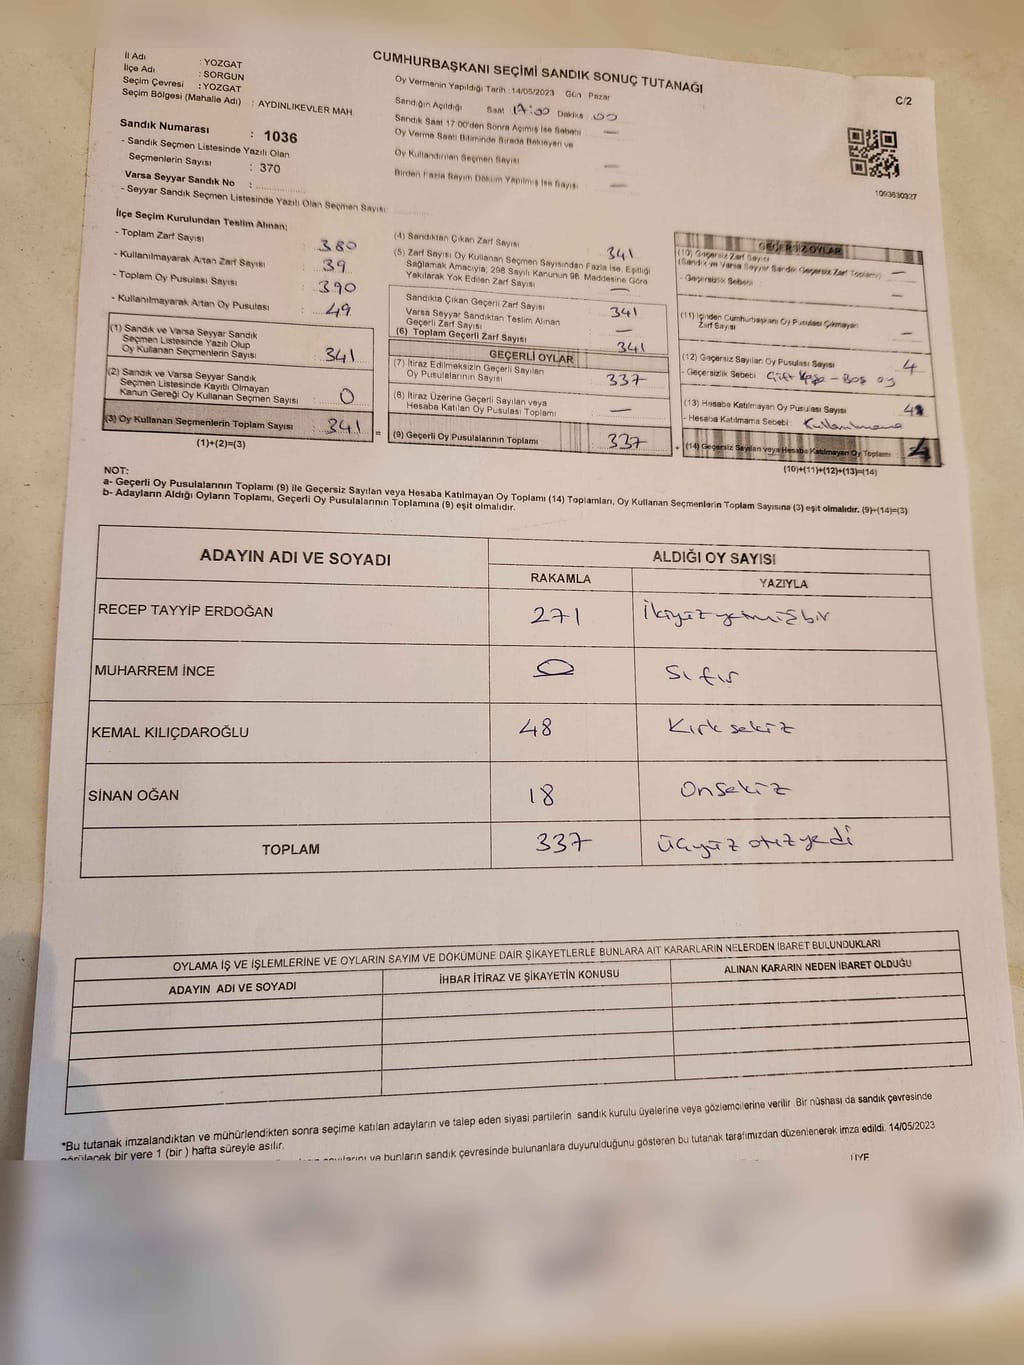 CUMHURBAŞKANI SEÇİMİ SANDIK SONUÇ TUTANAĞI
C/2
İl Adı : YOZGAT
İlçe Adı : SORGUN
Seçim Çevresi : YOZGAT
Seçim Bölgesi (Mahalle Adı) : AYDINLIKEVLER MAH
Oy Vermenin Yapıldığı Tarih : 14/05/2023 Gün : Pazar
Sandığın Açıldığı Saat 17:00 Dakika 00
Sandık Saat 17:00'den Sonra Açılmış İse Sebebi —
Oy Verme Saati Bitiminde Sırada Bekleyen ve
Oy Kullandırılan Seçmen Sayısı —
Birden Fazla Sayım Döküm Yapılmış İse Sayısı —
1093630327
Sandık Numarası : 1036
- Sandık Seçmen Listesinde Yazılı Olan
Seçmenlerin Sayısı : 370
Varsa Seyyar Sandık No :
- Seyyar Sandık Seçmen Listesinde Yazılı Olan Seçmen Sayısı
İlçe Seçim Kurulundan Teslim Alınan;
- Toplam Zarf Sayısı : 380
- Kullanılmayarak Artan Zarf Sayısı : 39
- Toplam Oy Pusulası Sayısı : 390
- Kullanılmayarak Artan Oy Pusulası : 49
(1) Sandık ve Varsa Seyyar Sandık
Seçmen Listesinde Yazılı Olup
Oy Kullanan Seçmenlerin Sayısı 341
(2) Sandık ve Varsa Seyyar Sandık
Seçmen Listesinde Kayıtlı Olmayan
Kanun Gereği Oy Kullanan Seçmen Sayısı 0
(3) Oy Kullanan Seçmenlerin Toplam Sayısı 341
(1)+(2)=(3)
(4) Sandıktan Çıkan Zarf Sayısı 341
(5) Zarf Sayısı Oy Kullanan Seçmen Sayısından Fazla İse, Eşitliği
Sağlamak Amacıyla, 298 Sayılı Kanunun 98. Maddesine Göre
Yakılarak Yok Edilen Zarf Sayısı —
Sandıkta Çıkan Geçerli Zarf Sayısı 341
Varsa Seyyar Sandıktan Teslim Alınan
Geçerli Zarf Sayısı —
(6) Toplam Geçerli Zarf Sayısı 341
GEÇERLİ OYLAR
(7) İtiraz Edilmeksizin Geçerli Sayılan
Oy Pusulalarının Sayısı 337
(8) İtiraz Üzerine Geçerli Sayılan veya
Hesaba Katılan Oy Pusulası Toplamı —
= (9) Geçerli Oy Pusulalarının Toplamı 337
GEÇERSİZ OYLAR
(10) Geçersiz Zarf Sayısı
(Sandık ve Varsa Seyyar Sandık Geçersiz Zarf Toplamı) —
- Geçersizlik Sebebi : —
(11) İçinden Cumhurbaşkanı Oy Pusulası Çıkmayan
Zarf Sayısı —
(12) Geçersiz Sayılan Oy Pusulası Sayısı 4
- Geçersizlik Sebebi : Çift Kaşe - Boş oy
(13) Hesaba Katılmayan Oy Pusulası Sayısı
- Hesaba Katılmama Sebebi : Kullanılmama
+ (14) Geçersiz Sayılan veya Hesaba Katılmayan Oy Toplamı 4
(10)+(11)+(12)+(13)=(14)
NOT:
a- Geçerli Oy Pusulalarının Toplamı (9) ile Geçersiz Sayılan veya Hesaba Katılmayan Oy Toplamı (14) Toplamları, Oy Kullanan Seçmenlerin Toplam Sayısına (3) eşit olmalıdır. (9)+(14)=(3)
b- Adayların Aldığı Oyların Toplamı, Geçerli Oy Pusulalarının Toplamına (9) eşit olmalıdır.
ADAYIN ADI VE SOYADI ALDIĞI OY SAYISI
RAKAMLA YAZIYLA
RECEP TAYYİP ERDOĞAN 271 İkiyüzyetmişbir
MUHARREM İNCE 0 Sıfır
KEMAL KILIÇDAROĞLU 48 Kırk sekiz
SİNAN OĞAN 18 Onsekiz
TOPLAM 337 üçyüz otuzyedi
OYLAMA İŞ VE İŞLEMLERİNE VE OYLARIN SAYIM VE DÖKÜMÜNE DAİR ŞİKAYETLERLE BUNLARA AİT KARARLARIN NELERDEN İBARET BULUNDUKLARI
ADAYIN ADI VE SOYADI İHBAR İTİRAZ VE ŞİKAYETİN KONUSU ALINAN KARARIN NEDEN İBARET OLDUĞU
*Bu tutanak imzalandıktan ve mühürlendikten sonra seçime katılan adayların ve talep eden siyasi partilerin sandık kurulu üyelerine veya gözlemcilerine verilir. Bir nüshası da sandık çevresinde
görülecek bir yere 1 (bir ) hafta süreyle asılır.
ve bunların sandık çevresinde bulunanlara duyurulduğunu gösteren bu tutanak tarafımızdan düzenlenerek imza edildi. 14/05/2023
ÜYE